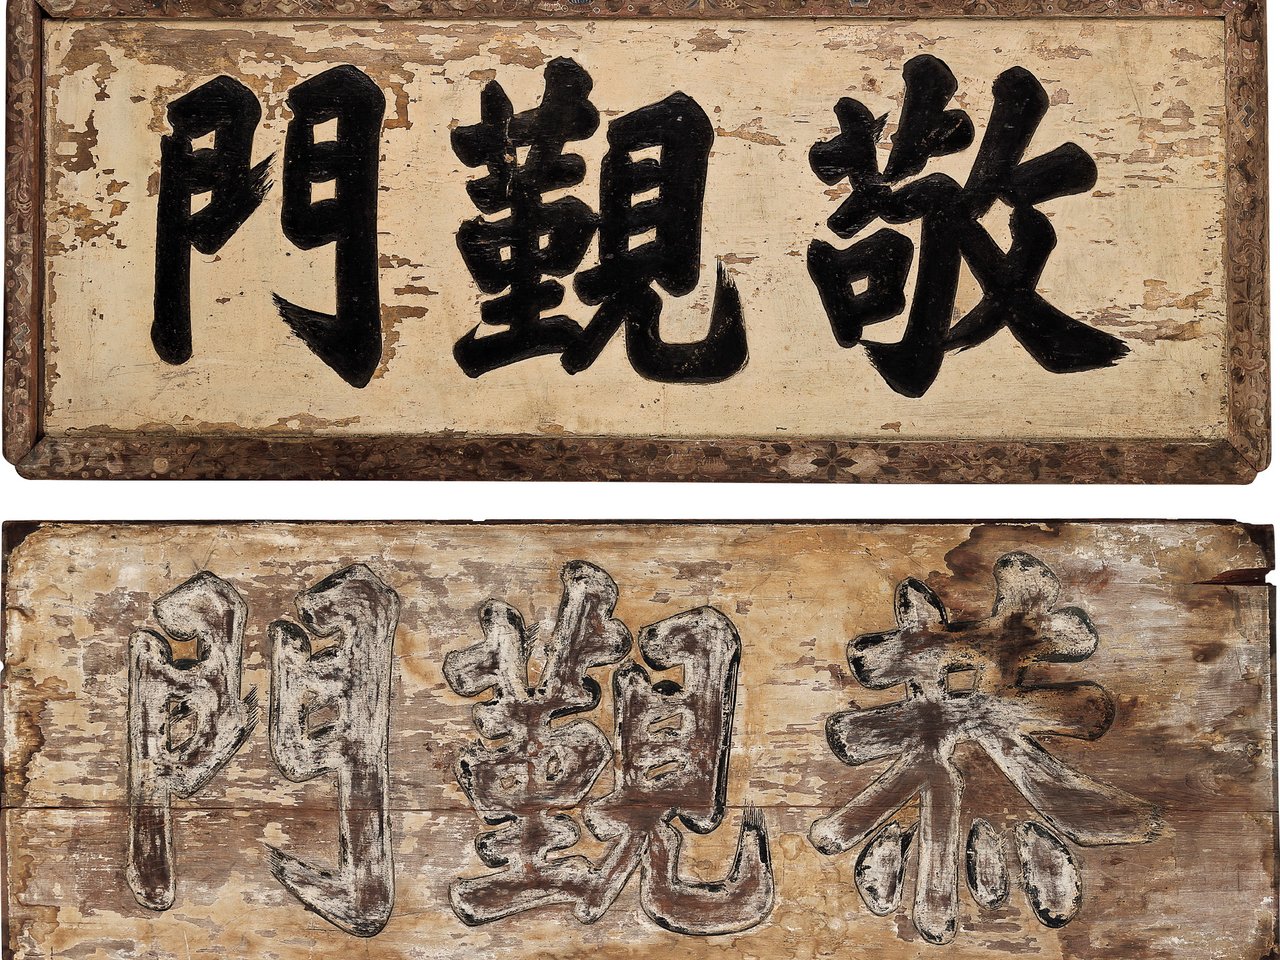 敬覲門
恭覲門